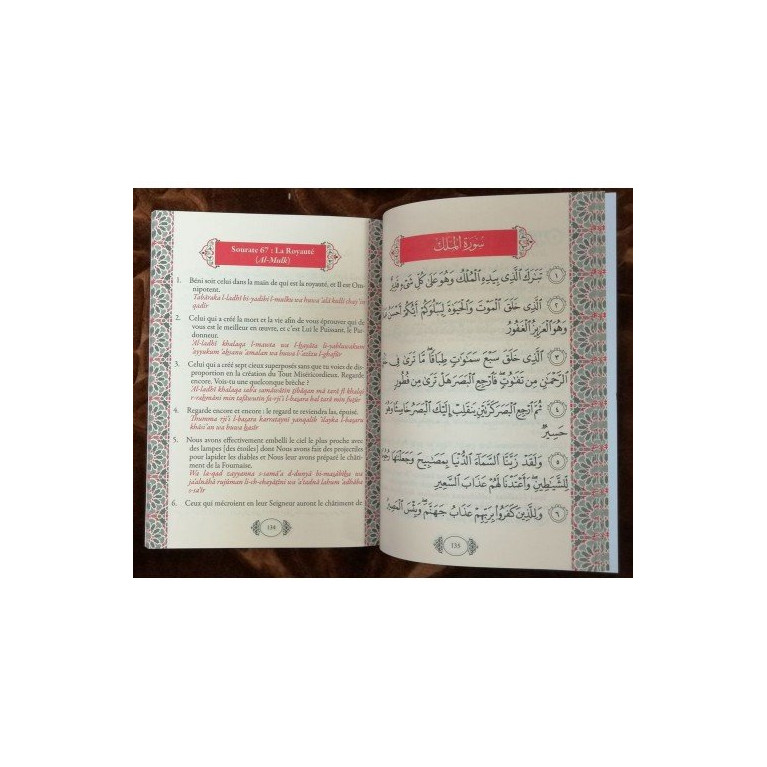 Sourate 67 : La Royauté
(Al-Mulk)
1. Béni soit celui dans la main de qui est la royauté, et Il est Om-
nipotent.
Tabâraka l-ladhî bi-yadihi l-mulku wa huwa 'alâ kulli chay'in
qadîr
2. Celui qui a créé la mort et la vie afin de vous éprouver qui de
vous est le meilleur en œuvre, et c'est Lui le Puissant, le Par-
donneur.
Al-ladhî khalaqa l-mawta wa l-ḥayâta li-yabluwakum
'ayyukum 'aḥsanu 'amalan wa huwa l-'azîzu l-ghafûr
3. Celui qui a créé sept cieux superposés sans que tu voies de dis-
proportion en la création du Tout Miséricordieux. Regarde
encore. Vois-tu une quelconque brèche ?
Al-ladhî khalaqa sab'a samâwâtin ṭibâqan mâ tarâ fî khalqi
r-raḥmâni min tafâwutin fa-rji'i l-baṣara hal tarâ min fuṭûr
4. Regarde encore et encore : le regard te reviendra las, épuisé.
Thumma rji'i l-baṣara karratayni yanqalib 'ilayka l-baṣaru
khâsi'an wa huwa ḥasîr
5. Nous avons effectivement embelli le ciel le plus proche avec
des lampes [des étoiles] dont Nous avons fait des projectiles
pour lapider les diables et Nous leur avons préparé le châti-
ment de la Fournaise.
Wa la-qad zayyanna s-samâ'a d-dunyâ bi-maṣâbîḥa wa
ja'alnâhâ rujûman li-ch-chayâṭîni wa 'a'tadnâ lahum 'adhâba
s-sa'îr
6. Ceux qui mécroient en leur Seigneur auront le châtiment de
134
سُورَةُ المُلْكِ
١ تَبَٰرَكَ ٱلَّذِى بِيَدِهِ ٱلْمُلْكُ وَهُوَ عَلَىٰ كُلِّ شَىْءٍ قَدِيرٌ
٢ ٱلَّذِى خَلَقَ ٱلْمَوْتَ وَٱلْحَيَوٰةَ لِيَبْلُوَكُمْ أَيُّكُمْ أَحْسَنُ
وَهُوَ ٱلْعَزِيزُ ٱلْغَفُورُ
٣ ٱلَّذِى خَلَقَ سَبْعَ سَمَٰوَٰتٍ طِبَاقًا ۖ مَّا تَرَىٰ فِى
ٱلرَّحْمَٰنِ مِن تَفَٰوُتٍ ۖ فَٱرْجِعِ ٱلْبَصَرَ هَلْ تَرَىٰ مِن فُطُورٍ
٤ ثُمَّ ٱرْجِعِ ٱلْبَصَرَ كَرَّتَيْنِ يَنقَلِبْ إِلَيْكَ ٱلْبَصَرُ خَاسِئًا وَهُوَ
حَسِيرٌ
٥ وَلَقَدْ زَيَّنَّا ٱلسَّمَآءَ ٱلدُّنْيَا بِمَصَٰبِيحَ وَجَعَلْنَٰهَا
لِّلشَّيَٰطِينِ ۖ وَأَعْتَدْنَا لَهُمْ عَذَابَ ٱلسَّعِيرِ
٦ وَلِلَّذِينَ كَفَرُوا۟ بِرَبِّهِمْ عَذَابُ جَهَنَّمَ ۖ وَبِئْسَ ٱلْمَصِيرُ
135